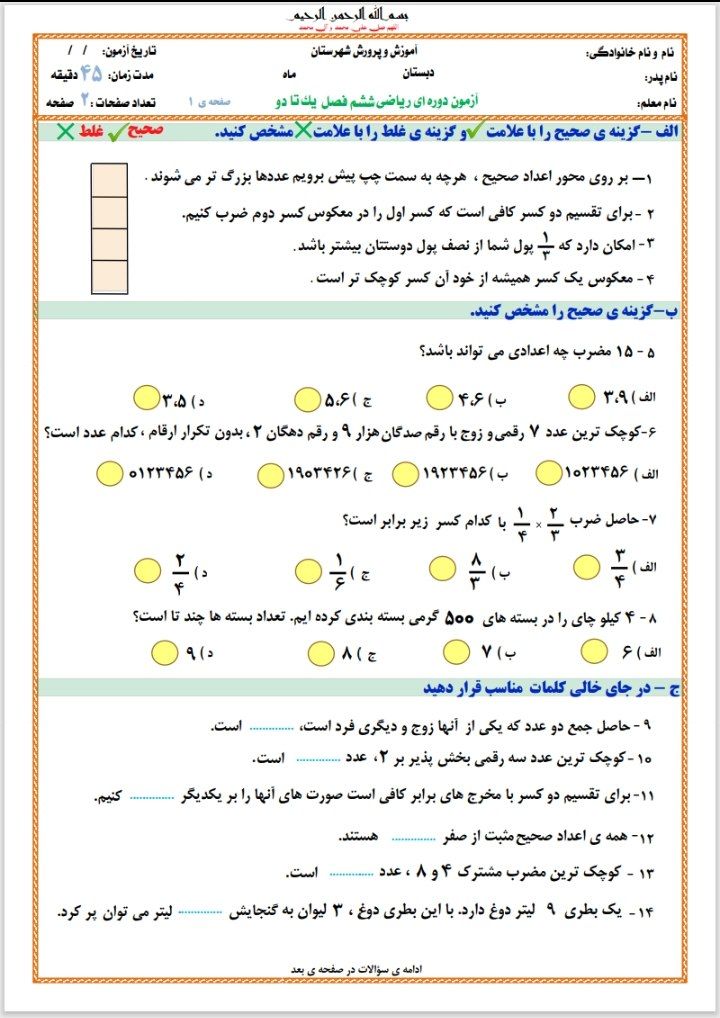 بسم الله الرحمن الرحیم
اللهم صل علی محمد و آل محمد
نام و نام خانوادگی: آموزش و پرورش شهرستان تاریخ آزمون: / /
نام پدر: دبستان ماه مدت زمان: ۴۵ دقیقه
نام معلم: آزمون دوره ای ریاضی ششم فصل یک تا دو صفحه ی ۱ تعداد صفحات: ۲ صفحه
الف – گزینه ی صحیح را با علامت ✓ و گزینه ی غلط را با علامت ✕ مشخص کنید. صحیح ✓ غلط ✕
۱– بر روی محور اعداد صحیح ، هرچه به سمت چپ پیش برویم عددها بزرگ تر می شوند .
۲ - برای تقسیم دو کسر کافی است که کسر اول را در معکوس کسر دوم ضرب کنیم.
۳- امکان دارد که ۱/۳ پول شما از نصف پول دوستتان بیشتر باشد .
۴ - معکوس یک کسر همیشه از خود آن کسر کوچک تر است .
ب–گزینه ی صحیح را مشخص کنید.
۵ - ۱۵ مضرب چه اعدادی می تواند باشد؟
الف ) ۳،۹ ب ) ۴،۶ ج ) ۵،۶ د ) ۳،۵
۶-کوچک ترین عدد ۷ رقمی و زوج با رقم صدگان هزار ۹ و رقم دهگان ۲ ، بدون تکرار ارقام ، کدام عدد است؟
الف ) ۱۰۲۳۴۵۶ ب ) ۱۹۲۳۴۵۶ ج ) ۱۹۰۳۴۲۶ د ) ۰۱۲۳۴۵۶
۷- حاصل ضرب ۲/۳ × ۱/۴ با کدام کسر زیر برابر است؟
الف ) ۳/۴ ب ) ۸/۳ ج ) ۱/۶ د ) ۲/۴
۸- ۴ کیلو چای را در بسته های ۵۰۰ گرمی بسته بندی کرده ایم. تعداد بسته ها چند تا است؟
الف ) ۶ ب ) ۷ ج ) ۸ د ) ۹
ج – در جای خالی کلمات مناسب قرار دهید
۹ - حاصل جمع دو عدد که یکی از آنها زوج و دیگری فرد است، ............ است.
۱۰ -کوچک ترین عدد سه رقمی بخش پذیر بر ۲، عدد ............ است.
۱۱- برای تقسیم دو کسر با مخرج های برابر کافی است صورت های آنها را بر یکدیگر ............ کنیم.
۱۲- همه ی اعداد صحیح مثبت از صفر ............ هستند.
۱۳ - کوچک ترین مضرب مشترک ۴ و ۸ ، عدد ............ است.
۱۴ - یک بطری ۹ لیتر دوغ دارد. با این بطری دوغ ، ۳ لیوان به گنجایش ............ لیتر می توان پر کرد.
ادامه ی سؤالات در صفحه ی بعد